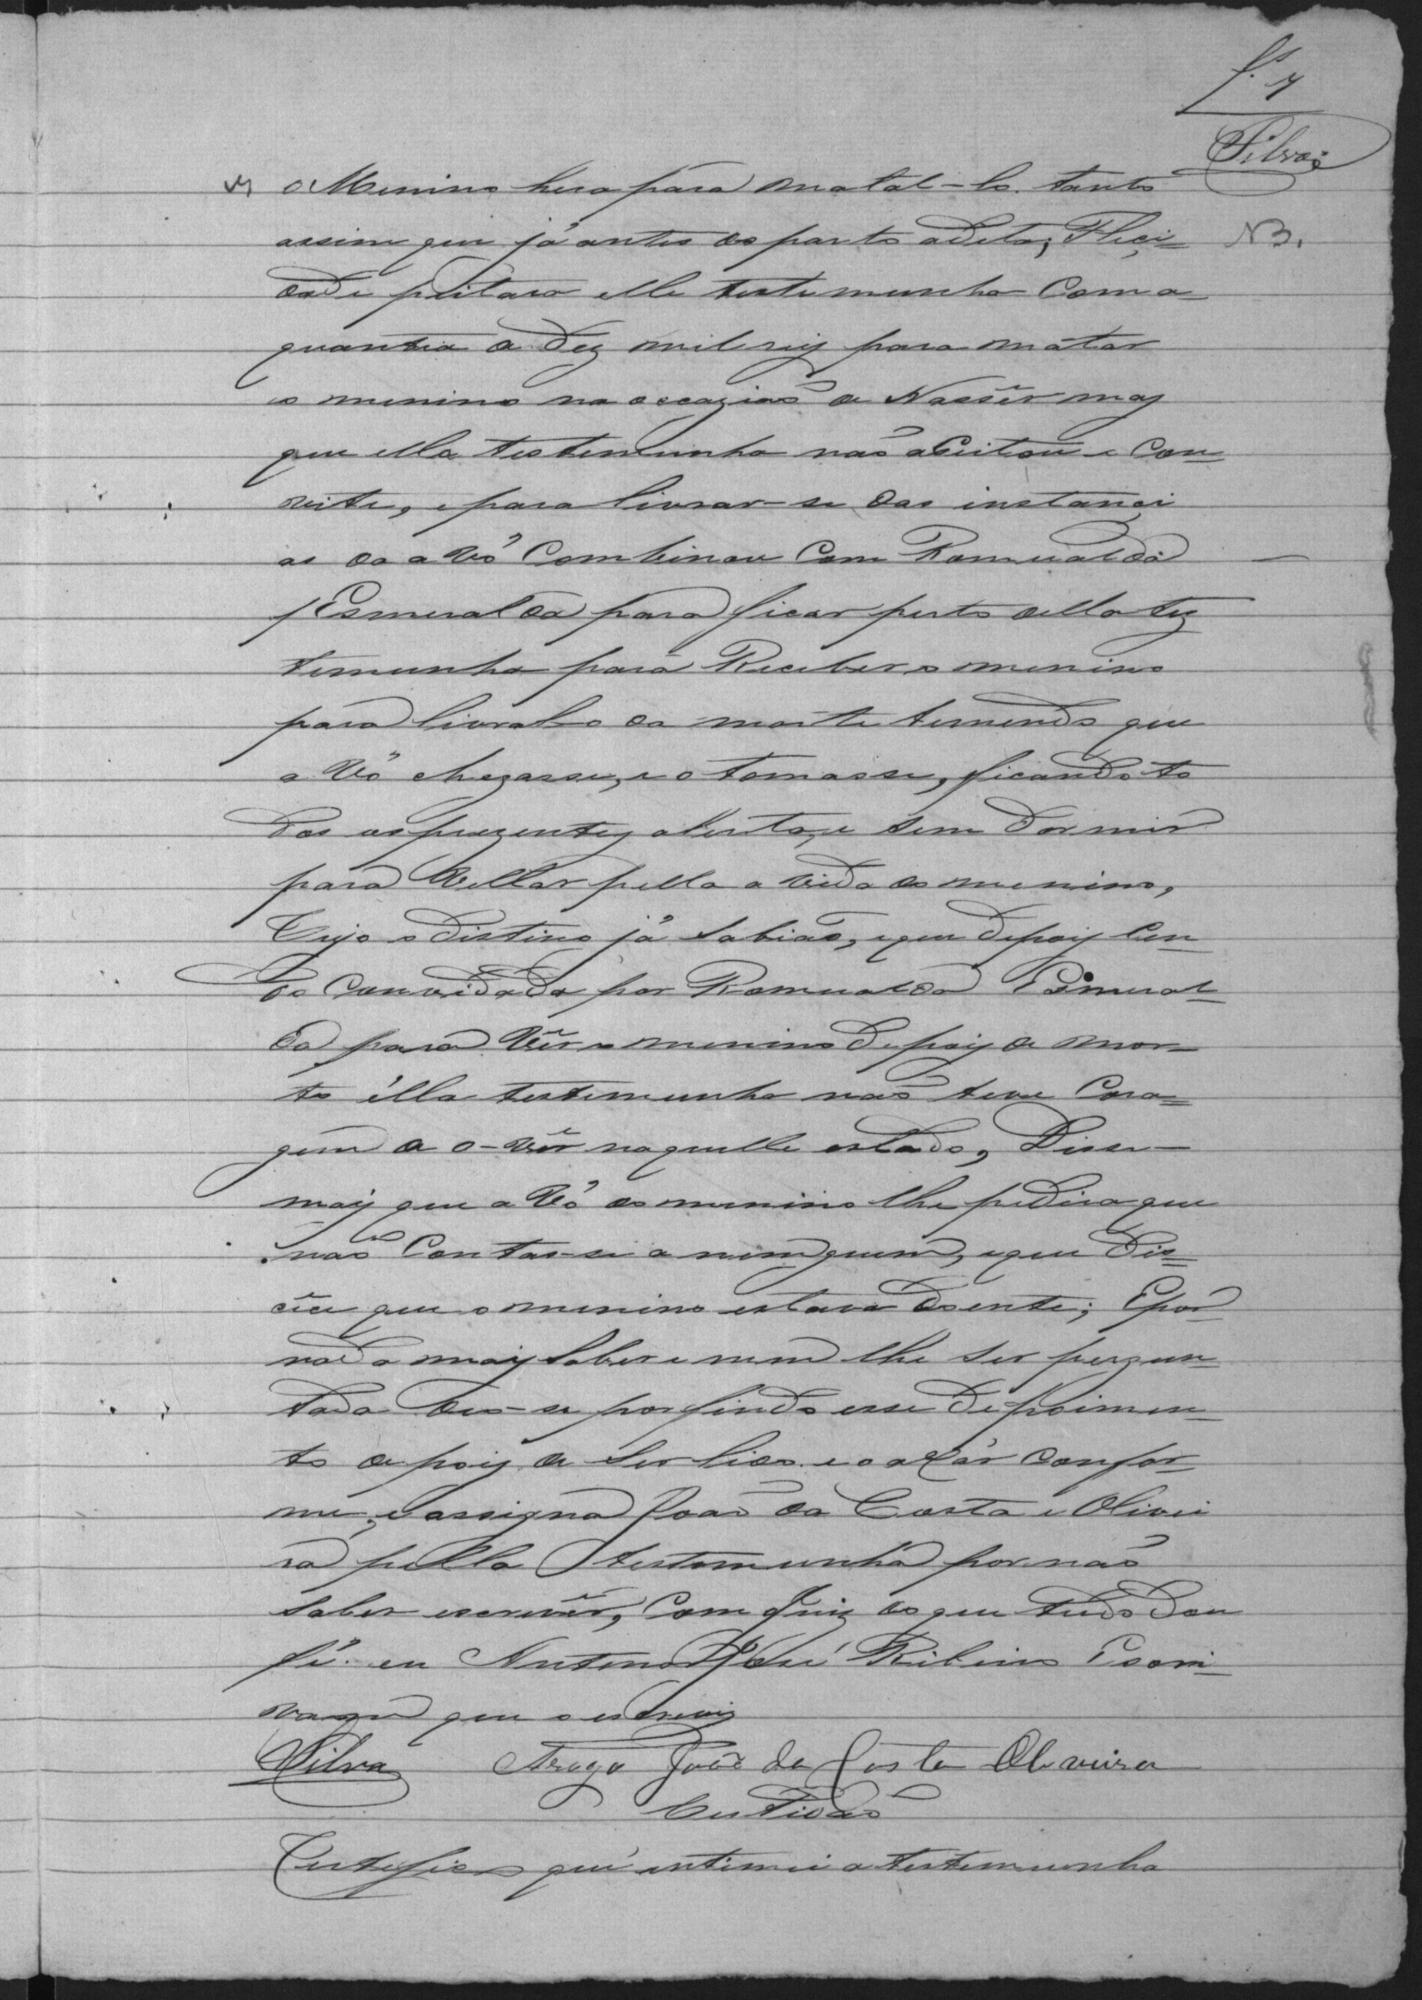 f. 7
Silva
o Menino hera para matal-lo. tanto
assim que já antes do parto a dita; Fleci= NB.
dade peitara ella testemunha com a
quantia de dez mil reis para matar
o menino na occazião de Nassêr mas
que ella testemunha não aceitou e con=
vite, e para livrar-se das instanci
as da a vó combinou com Romualda
Esmeralda para ficar perto della tes
temunha para Receber o menino
para livral-o da morte temendo que
a Vó chegasse, e o tomasse, ficando to
dos os prezentes alerta, e sem dormir
para Vellar pella a vida do menino,
Cujo o distino já sabião, e que depois sen=
do Convidada por Romualda Esmeral=
da para Vêr o menino depois de mor=
to élla testemunha não teve Cora=
gem de o-vêr naquelle estado, Disse-
mais que a Vó do menino lhe pedira que
não Contas-se a nem guem, e que dis=
cêce que o menino estava doente; E por
nada mais saber e nem lhe ser pergun=
tada deu-se por findo esse depoimen=
to depois de ser lido. e o axár confor=
me, e assigna João da Costa e Olivei
ra pella testemunha por não
saber escrevêr, com Juiz do que tudo dou
fé. eu Antenor José Ribeiro Escri=
vam que o escrevi
Silva Arogo João da Costa Oliveira
Certidão
Certifico que intimei a testemunha